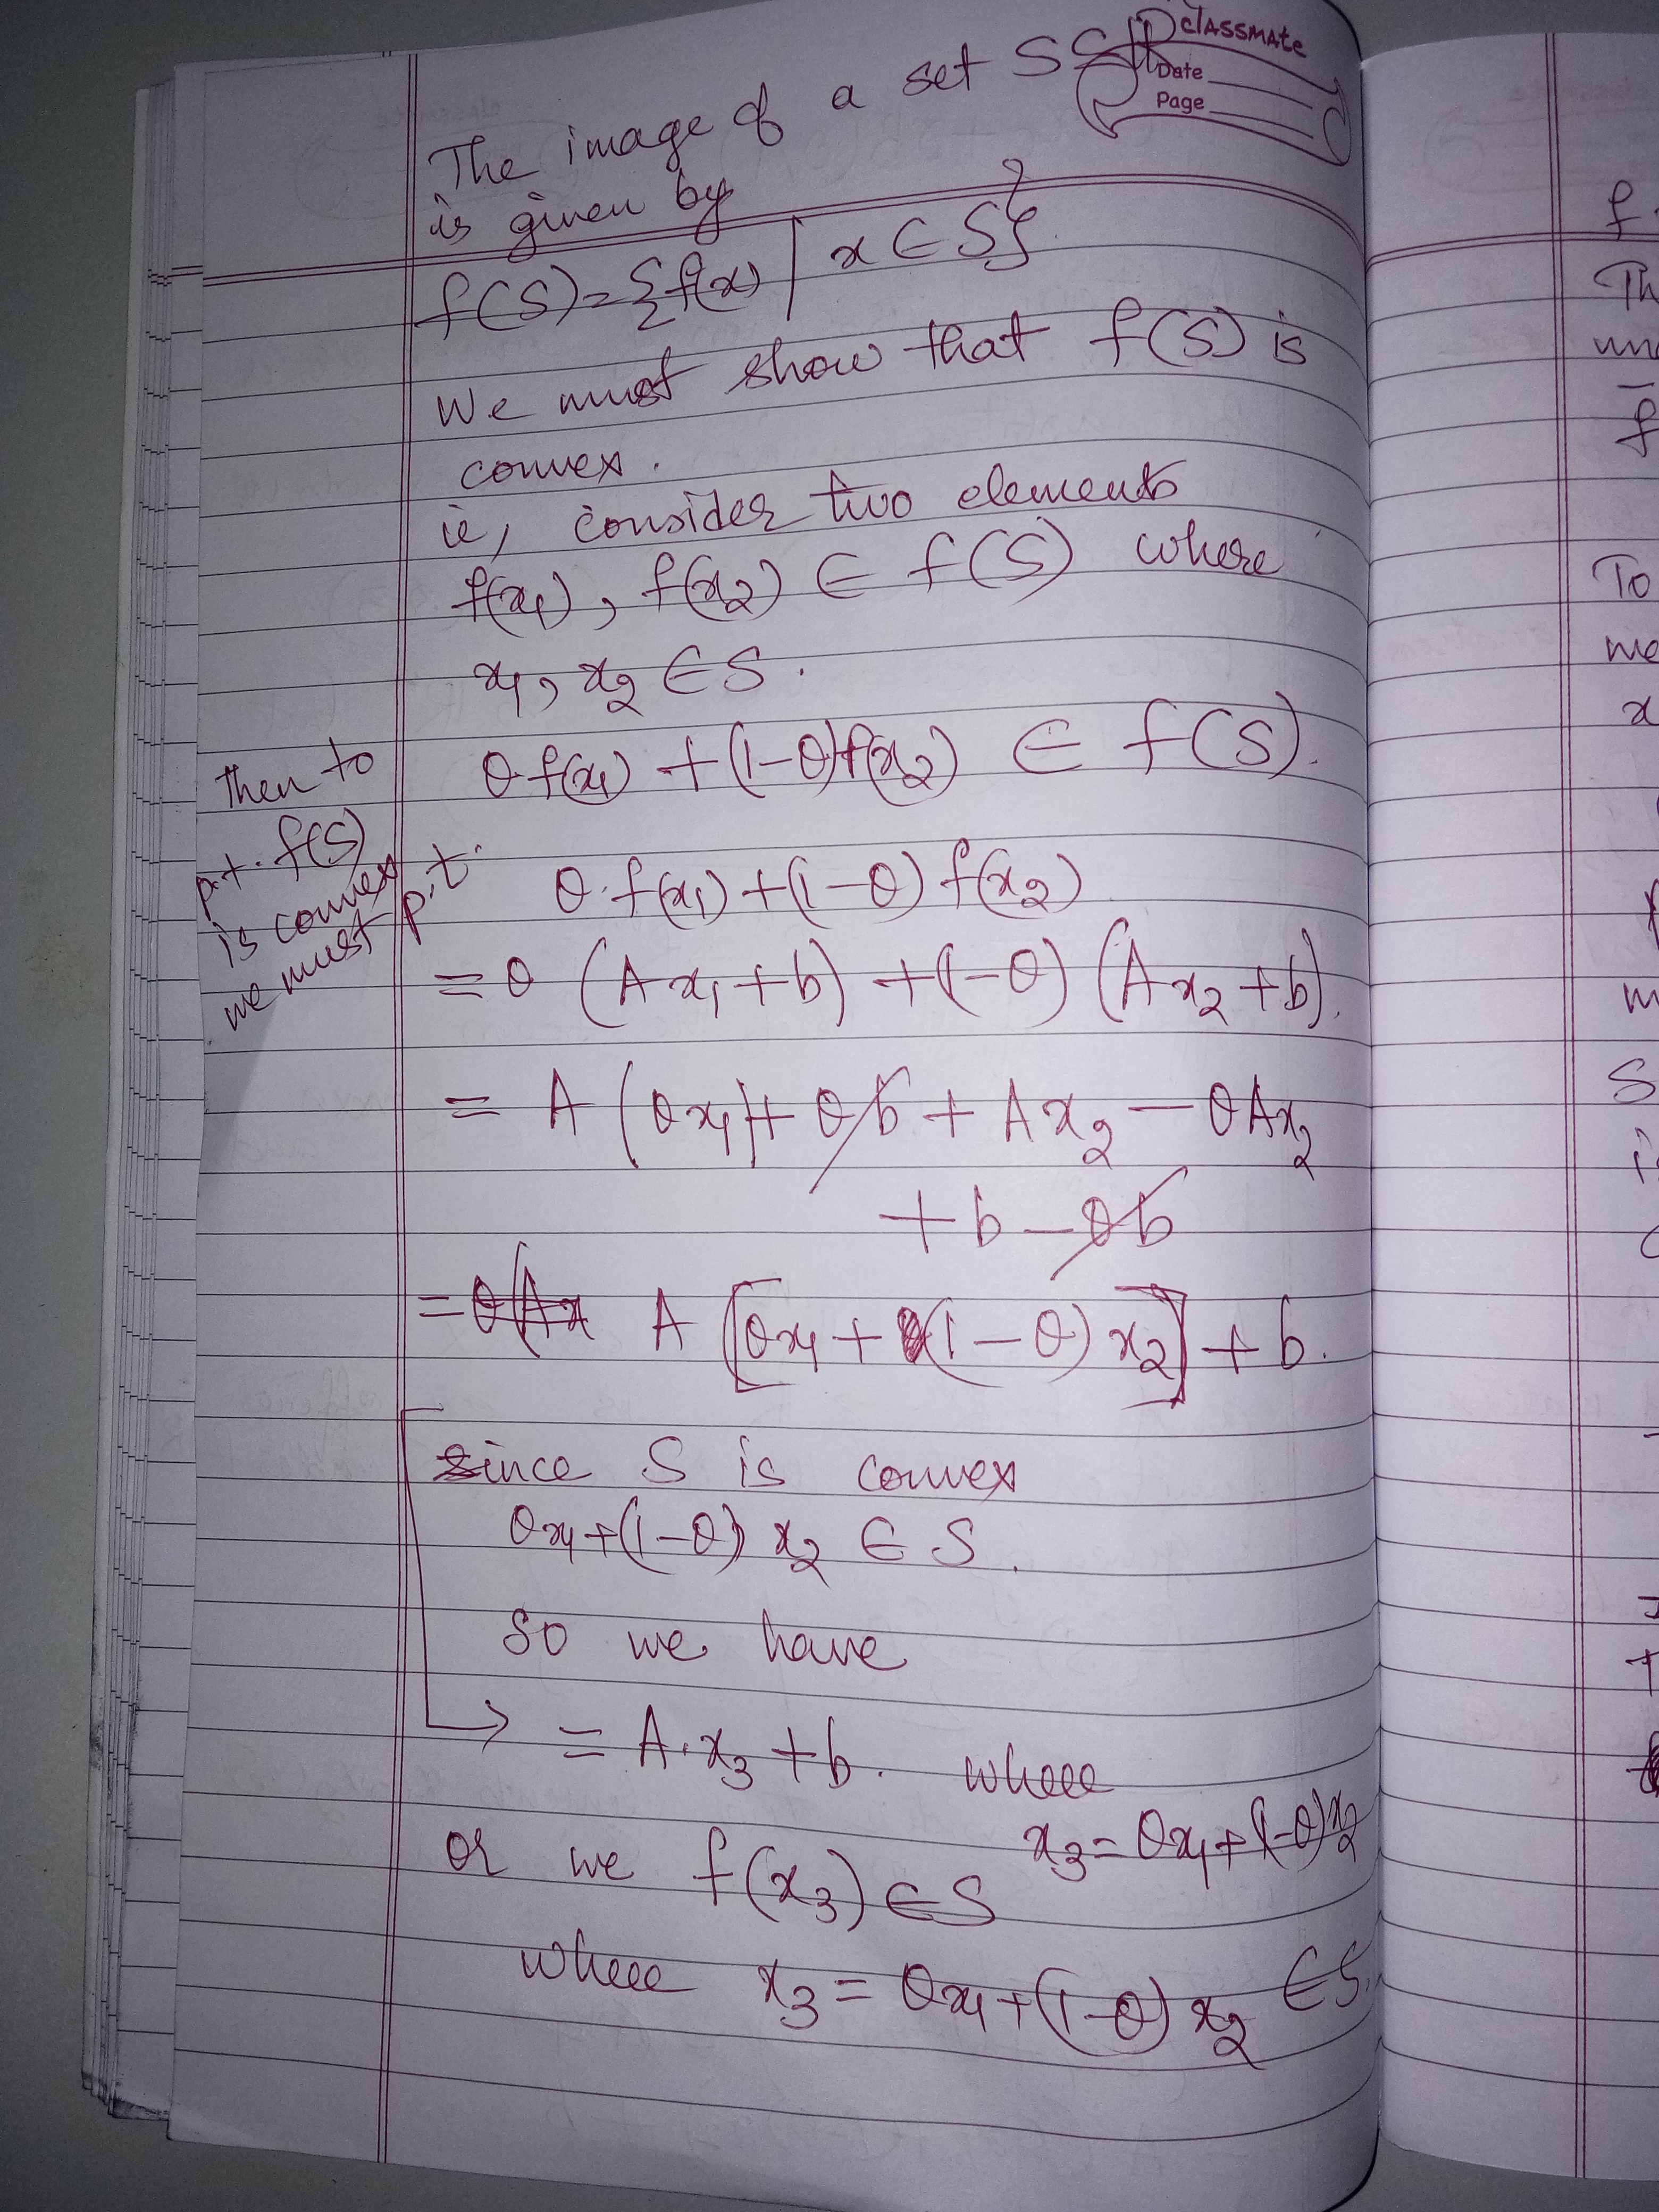 classmate
Date
Page
The image of a set S ⊆ R
is given by
f(S) = {f(x) | x ∈ S}
We must show that f(S) is
convex.
ie, consider two elements
f(x₁), f(x₂) ∈ f(S) where
x₁, x₂ ∈ S.
Then to
p.t. f(S)
is convex
we must p.t.
θ f(x₁) + (1-θ)f(x₂) ∈ f(S).
θ. f(x₁) + (1-θ) f(x₂)
= θ (Ax₁ + b) + (1-θ) (Ax₂ + b).
= A (θx₁) + θb + Ax₂ - θAx₂
+ b - θb
= A [θx₁ + (1-θ) x₂] + b.
since S is convex
θx₁ + (1-θ) x₂ ∈ S.
So we have
= A.x₃ + b. where
x₃ = θx₁ + (1-θ)x₂
or we f(x₃) ∈ S
where x₃ = θx₁ + (1-θ) x₂ ∈ S.
f
Th
un
f
To
me
x
m
S
i